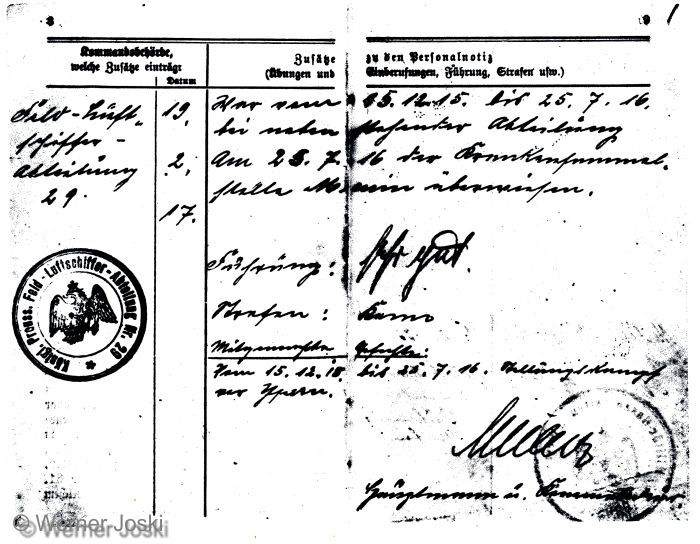 8
9
1
Kommandobehörde,
welche Zusätze einträgt
Datum
Zusätze
(Übungen und
zu den Personalnotiz
Einberufungen, Führung, Strafen usw.)
Feld-Luft-
schiffer-
Abteilung
29.
19.
2.
17.
War vom 15.12.15. bis 25.7.16.
bei neben stehender Abteilung
Am 25.7.16 der Krankensammel-
stelle Menin überwiesen.
Führung: sehr gut.
Strafen: Keine
Mitgemachte Gefechte:
Vom 15.12.15. bis 25.7.16. Stellungskampf
vor Ypern.
Königl. Preuss. Feld-Luftschiffer-Abteilung Nr. 29
Hauptmann u.
© Werner Joski
© Werner Joski